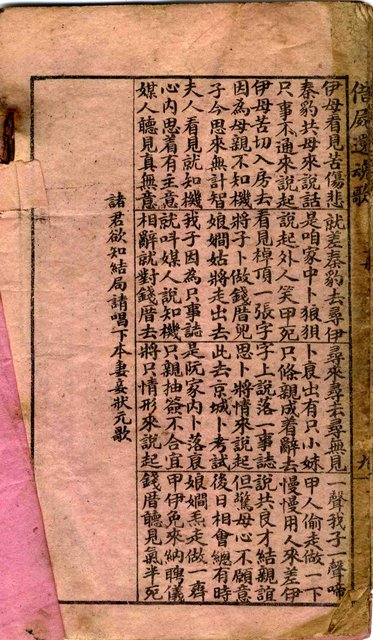 借屍還魂歌
九
伊母看見苦傷悲 就差秦豹去尋伊 尋來尋去尋無見 一聲我子一聲啼
秦豹共母來說話 是咱家中卜狼狽 卜衰出有只小妹 甲人偷走做一下
只事不通來說起 說起外人笑甲死 只條親成着辭去 慢慢用人來差伊
伊母苦切入房去 看見棹頂一張字 字上說落一事誌 說共良才結親誼
因為母親不知機 將子卜做錢厝兒 思卜將情來說起 但驚母心不願意
子今思來無計智 娘嫺姑將走出去 此去京城卜考試 後日相會總有時
夫人看見就知機 我子因為只事誌 是阮家內卜落衰 娘嫺焄走做一齊
心內思着有主意 就叫媒人說知機 只親抽簽不合宜 甲伊免來納聘儀
媒人聽見真無意 相辭就對錢厝去 將只情形來說起 錢厝聽見氣半死
諸君欲知結局請唱下本妻妾狀元歌